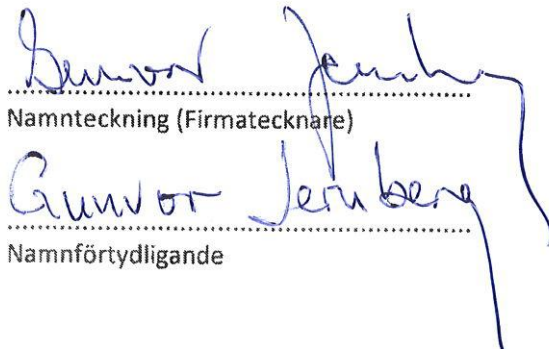 Gunvor Jernberg
Namnteckning (Firmatecknare)
Gunvor Jernberg
Namnförtydligande